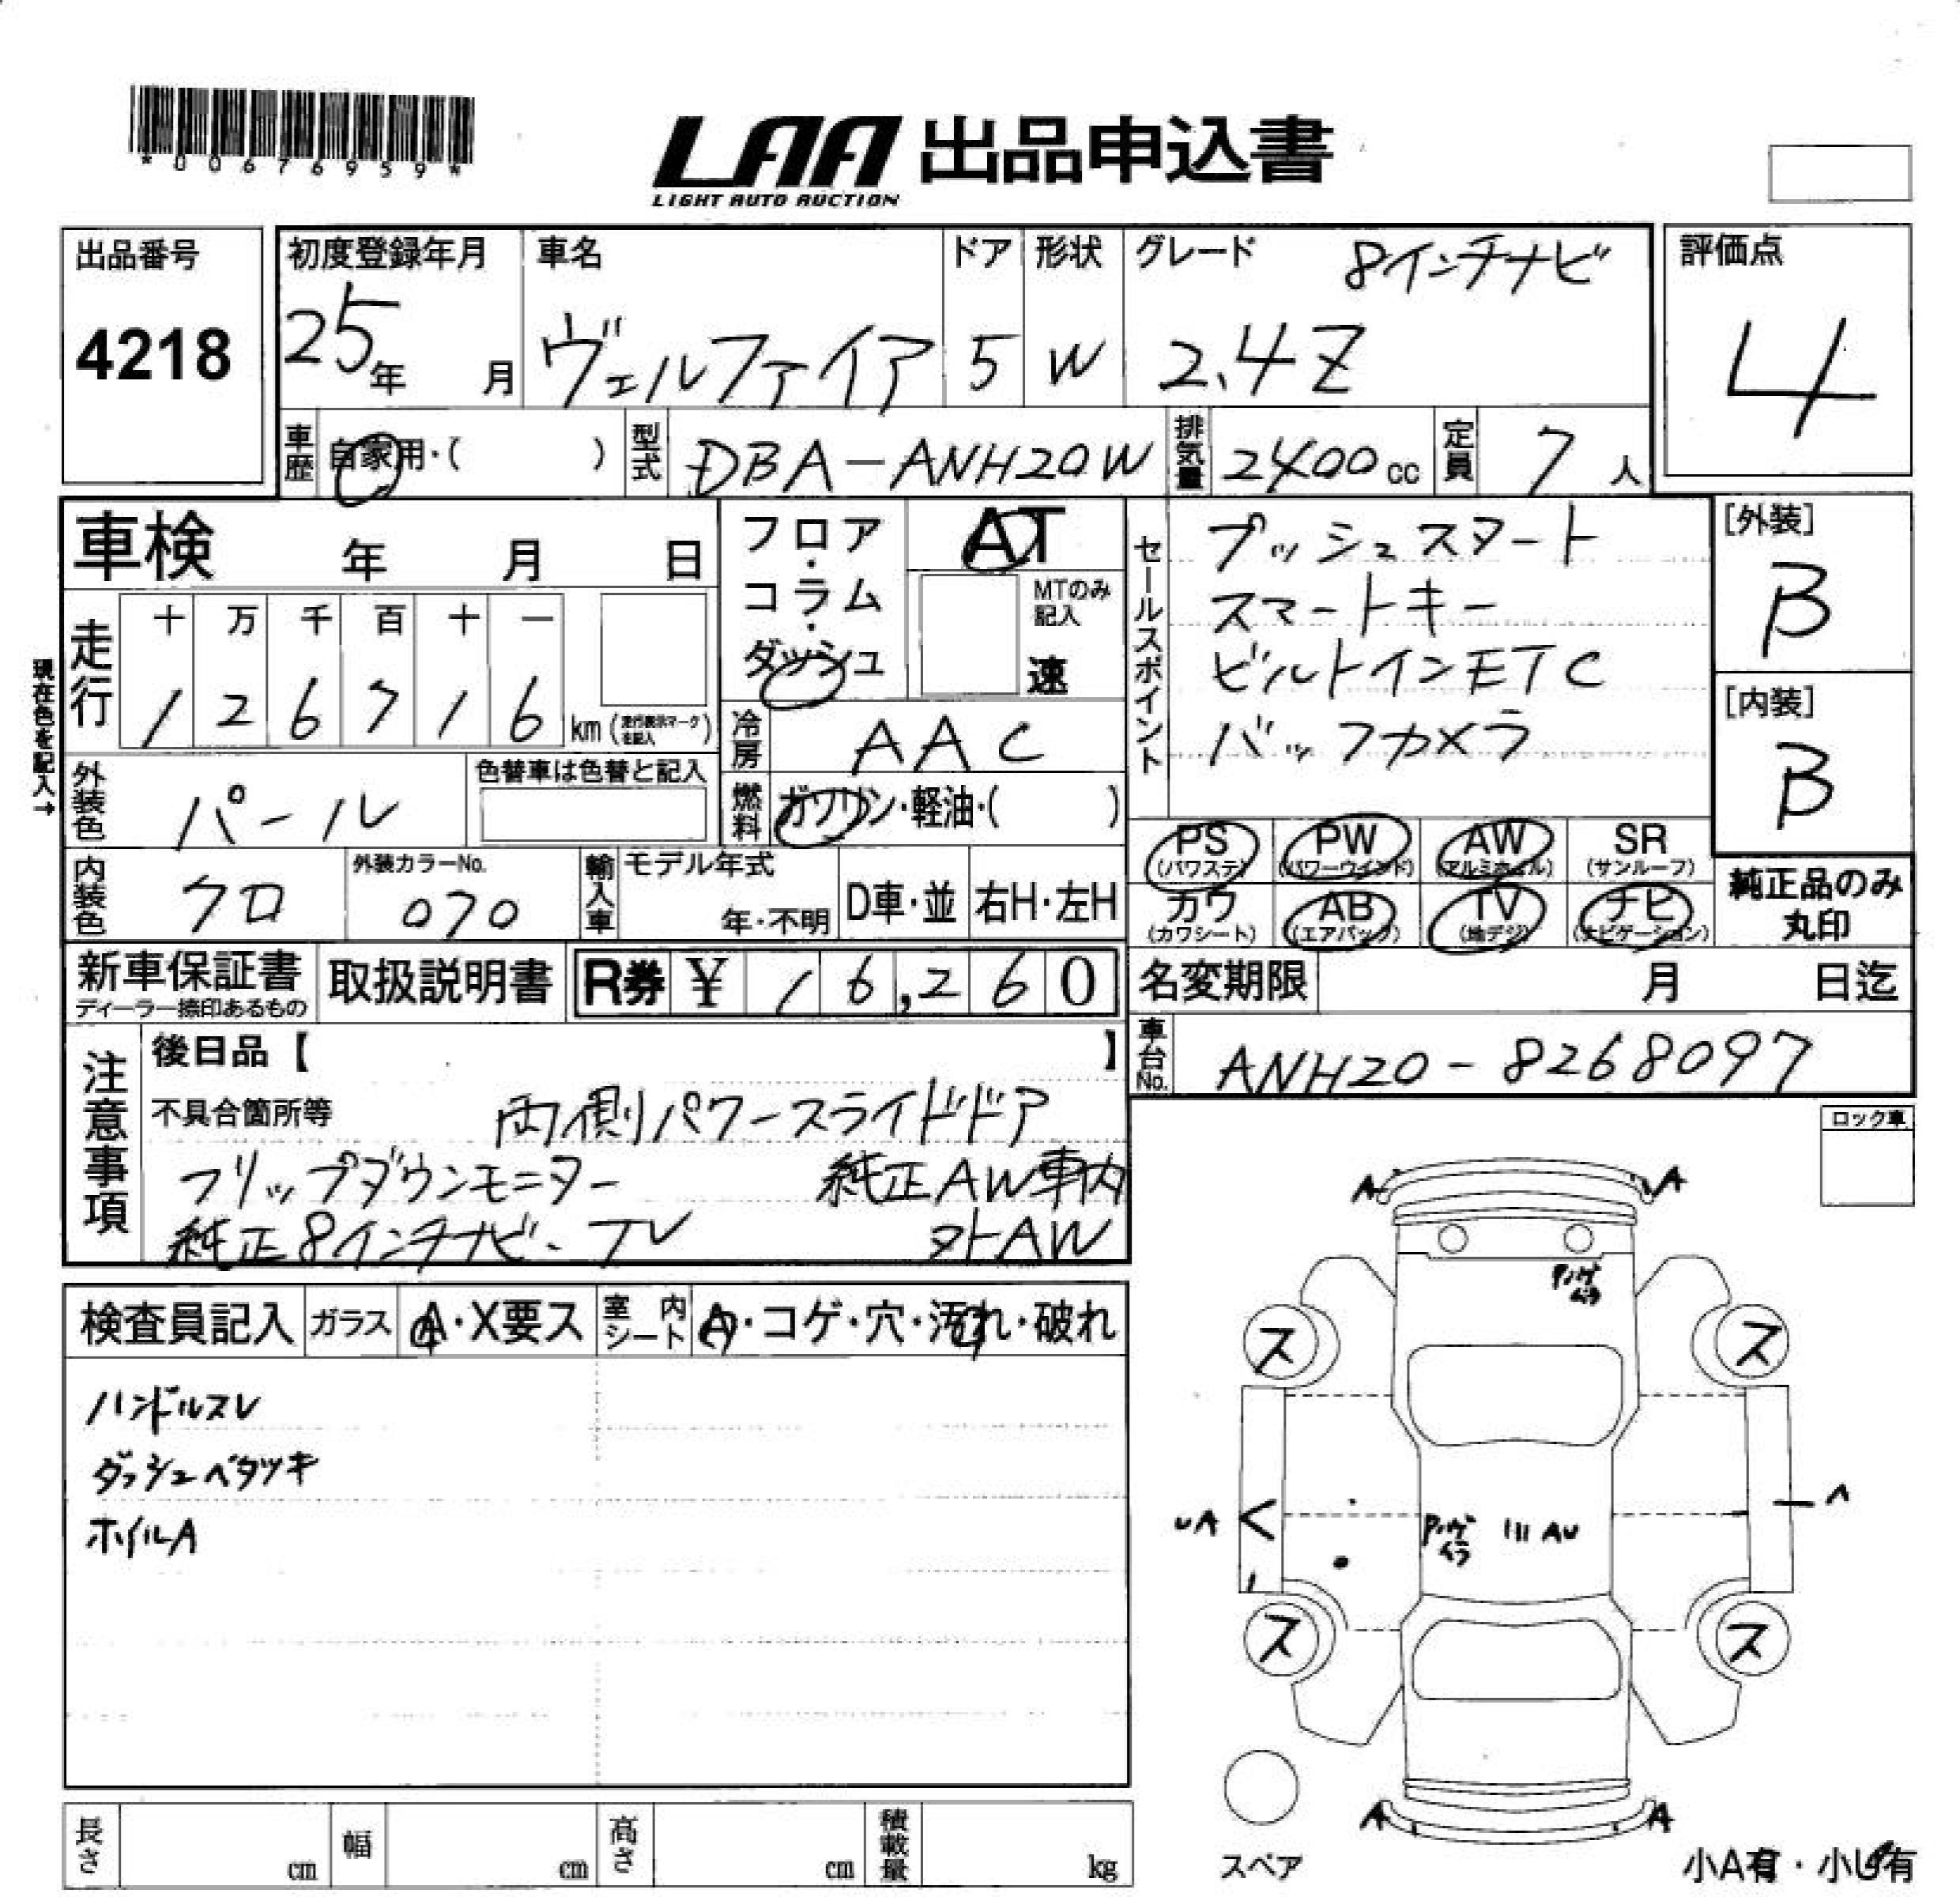 *00676959*
LAA 出品申込書
LIGHT AUTO AUCTION
出品番号
4218
初度登録年月
25年 月
車名
ヴェルファイア
ドア
5
形状
W
グレード 8インチナビ
2.4Z
評価点
4
車歴 自家用・( )
型式 DBA-ANH20W
排気量 2400cc
定員 7人
車検 年 月 日
フロア・コラム・ダッシュ
AT
MTのみ記入
速
セールスポイント
プッシュスタート
スマートキー
ビルトインETC
バックカメラ
[外装]
B
[内装]
B
現在色を記入→
走行
十 万 千 百 十 一
1 2 6 7 1 6 km(走行表示マークを記入)
冷房 AAC
外装色 パール
色替車は色替と記入
燃料 ガソリン・軽油・( )
内装色 クロ
外装カラーNo.
070
輸入車 モデル年式
年・不明
D車・並 右H・左H
PS(パワステ) PW(パワーウインド) AW(アルミホイル) SR(サンルーフ)
カワ(カワシート) AB(エアバック) TV(地デジ) ナビ(ナビゲーション)
純正品のみ丸印
新車保証書
ディーラー捺印あるもの
取扱説明書
R券 ¥ 16,260
名変期限 月 日迄
車台No. ANH20-8268097
注意事項
後日品【 】
不具合箇所等 両側パワースライドドア
フリップダウンモニター 純正AW車内
純正8インチナビ・TV 外AW
ロック車
検査員記入 ガラス A・X要ス 室内シート A・コゲ・穴・汚れ・破れ
ハンドルスレ
ダッシュベタツキ
ホイルA
A A
ス ス
UA
AU
A
ス ス
A A
スペア
小A有・小U有
長さ cm 幅 cm 高さ cm 積載量 kg